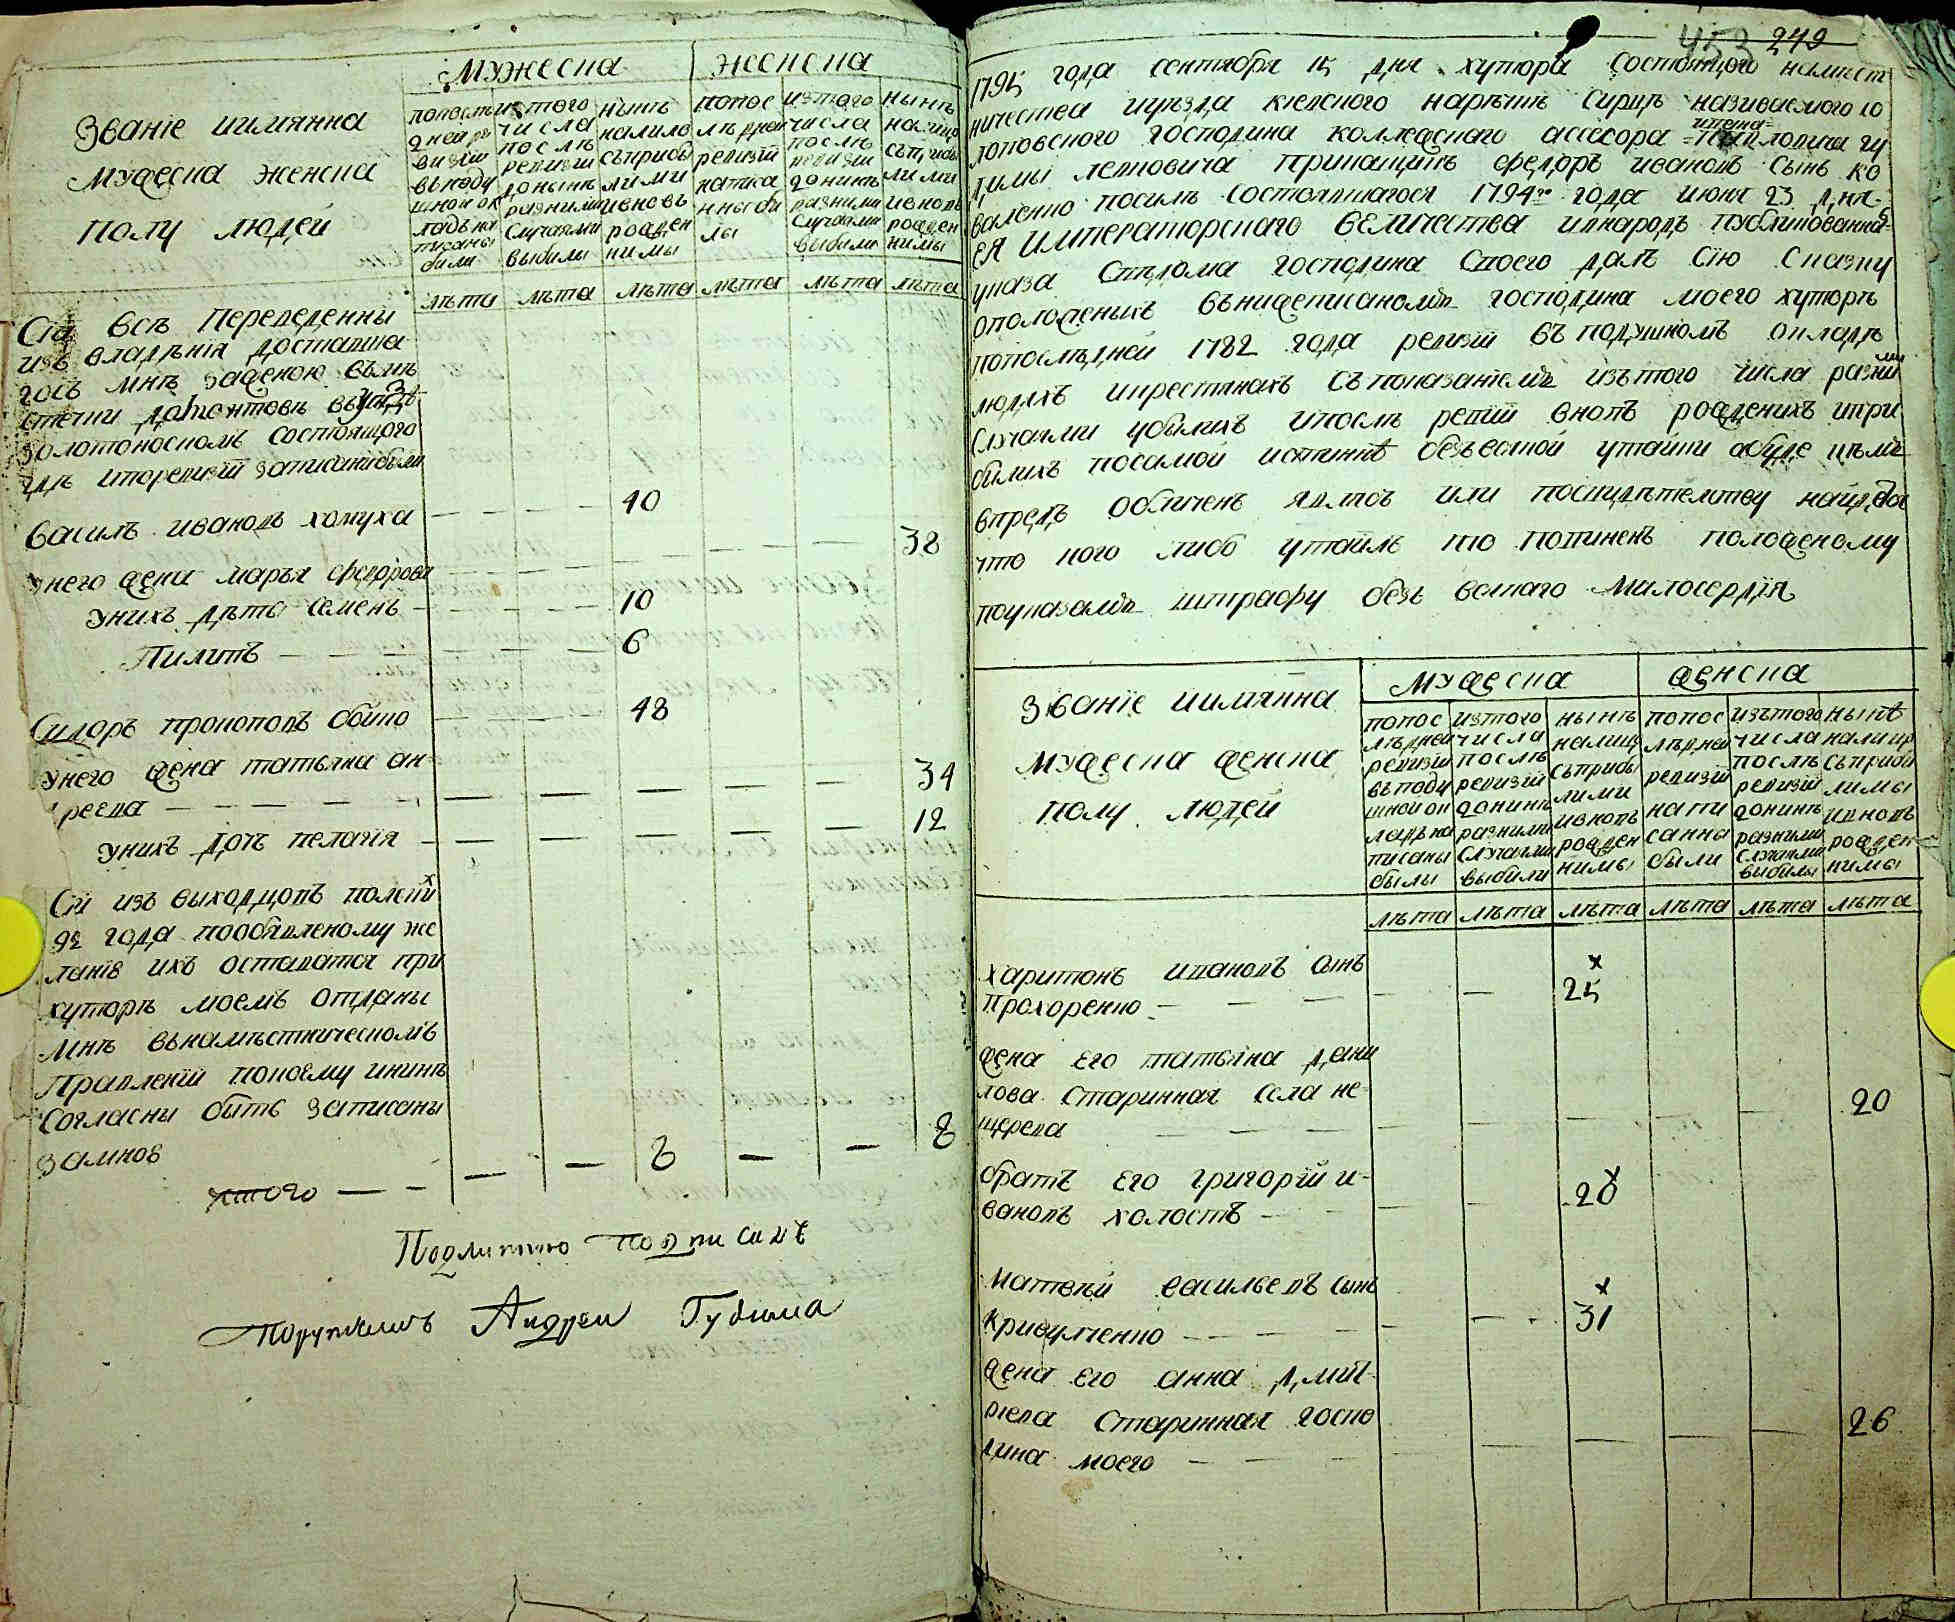 Мужеска женска
Званіе иимянна
мужеска женска
полу людей
попослѣ
дней ре
визіи
вподу
шной ок
ладъ на
писаны
были
изтого
числа
послѣ
ревизіи
донынѣ
разними
случаями
выбыли
нынѣ
налицо
съприбы
лими
ивновь
рожден
ними
попос
лѣдней
ревизіи
написа
нны бы
лы
изтого
числа
послѣ
ревизіи
донинѣ
разними
случаями
выбыли
нынѣ
налицо
съприбы
лими
ивновь
рожден
нимы
лѣта лѣта лѣта лѣта лѣта лѣта
Сіи всѣ переведенны
изъ владѣнія доставша
гось мнѣ заженою вмѣ
стечки
золотоноскомъ состоящого
гдѣ иповревизіи записаны были
Василь ивановъ хомуха 40
унего жена марья федорова 38
унихъ дѣти семенъ 10
Пилипъ 6
Сидоръ прокоповъ бойко 48
унего жена татьяна ан
дреева 34
унихъ дочь пелагія 12
Сіи изъ выходцовъ полскихъ
92 года пообявленому же
ланію ихъ оставатся при
хуторѣ моемъ отданы
мнѣ внамѣстническомъ
Правленіи покоему ининѣ
Согласны быть записаны
замною
итого 8 8
Подлинно подписалъ
Порутчикъ Андрей Гудима
453 249
1795 года сентября 15 дня хутора состоящого намест
ничества иуезда киевского нарѣчкѣ сирцѣ називаемого го
ловского господина колежскаго ассесора гу
димы левковича прикащикъ федоръ ивановъ сынъ ко
валенко посилѣ состоявшагося 1794го года июня 23 дня
ея императорскаго величества ивнародъ публикованнаго
указа сведома господина своего далъ сію сказку
оположенихъ внижеписаномъ господина моего хуторѣ
попослѣдней 1782 года ревизіи въ подушномъ окладѣ
людяхъ икрестянахъ съпоказаніемъ изътого числа разними
случаями убылихъ ипослѣ ревізіи вновь рожденихъ ипри
былихъ посамой истиннѣ безъвсякой утайки абуде кѣмъ
впредь обличенъ явлюсъ или посвидѣтелству найдется
что кого либо утаилъ то повиненъ положеному
поуказамъ штрафу безъ всякаго милосердія
Званіе иимянна
мужеска женска
полу людей
мужеска женска
попос
лѣдней
ревизіи
вподу
шной ок
ладъ на
писаны
былы
изтого
числа
послѣ
ревизіи
донинѣ
разними
случаями
выбыли
нынѣ
налицо
съприбы
лими
ивновъ
рожден
нимы
попос
лѣдней
ревизіи
напи
санны
были
изътого
числа
послѣ
ревизіи
донинѣ
разними
случаями
выбилы
нынѣ
налицо
съприбы
лимы
ивновъ
рожден
нимы
лѣта лѣта лѣта лѣта лѣта лѣта
Харитонъ ивановъ сынъ
Прохоренко 25
жена его татьяна дани
лова старинная села не
щерева 20
братъ его григорій и-
вановъ холостъ 20
Матвѣй васильевъ сынъ
31
жена его анна дмит
риева старинная госпо
дина моего 26